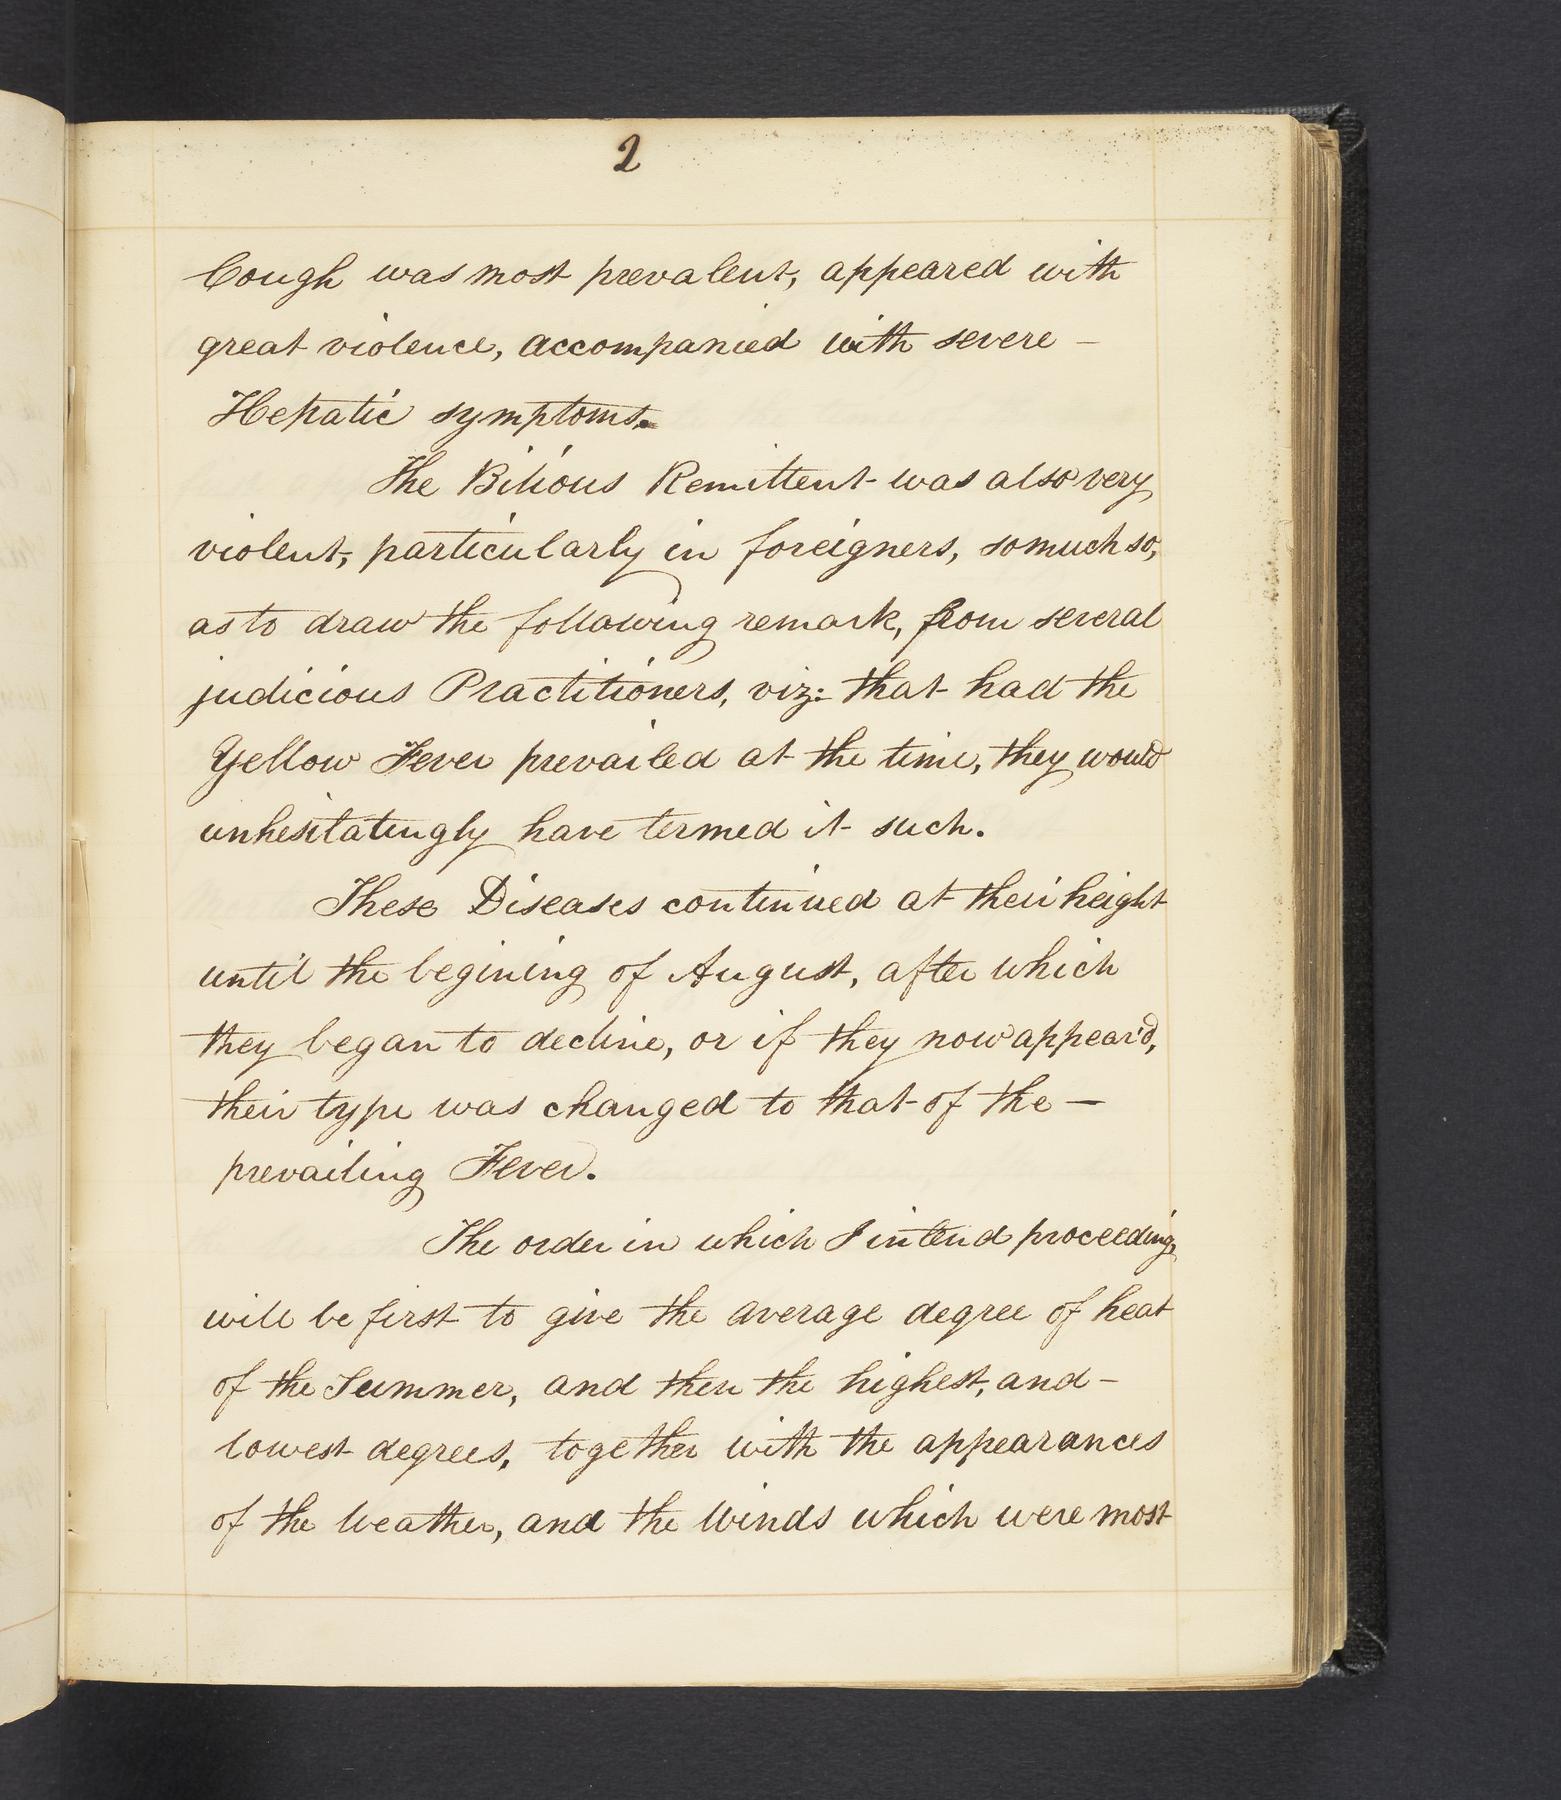 2
Cough was most prevalent, appeared with
great violence, accompanied with severe –
Hepatic symptoms.
The Bilious Remittent was also very
violent, particularly in foreigners, so much so,
as to draw the following remark, from several
judicious Practitioners, viz: that had the
Yellow Fever prevailed at the time, they would
unhesitatingly have termed it such.
These Diseases continued at their height
until the begining of August, after which
they began to decline, or if they now appear'd,
their type was changed to that of the —
prevailing Fever.
The order in which I intend proceeding,
will be first to give the average degree of heat
of the Summer, and then the highest, and –
lowest degrees, together with the appearances
of the Weather, and the Winds which were most